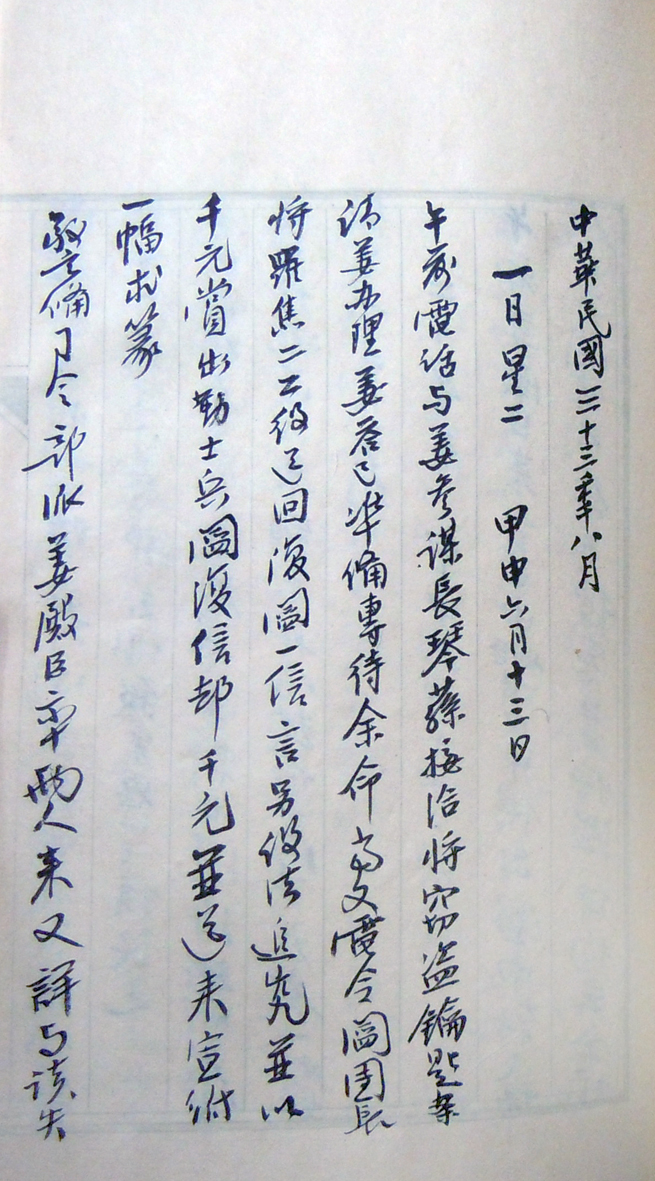 中華民國三十三年八月
一日星二 甲申六月十三日
午前電話与姜參謀長琴蓀接洽將窃盗鑰匙案
請姜办理姜答已準備專待余命高又電令閻团長
將羅焦二工役送回復閻一信言另設法追究並以
千元賞出勤士兵閻復信却千元並送来宣紙
一幅求篆
警備司令部派姜殿臣率两人来又詳与谈失